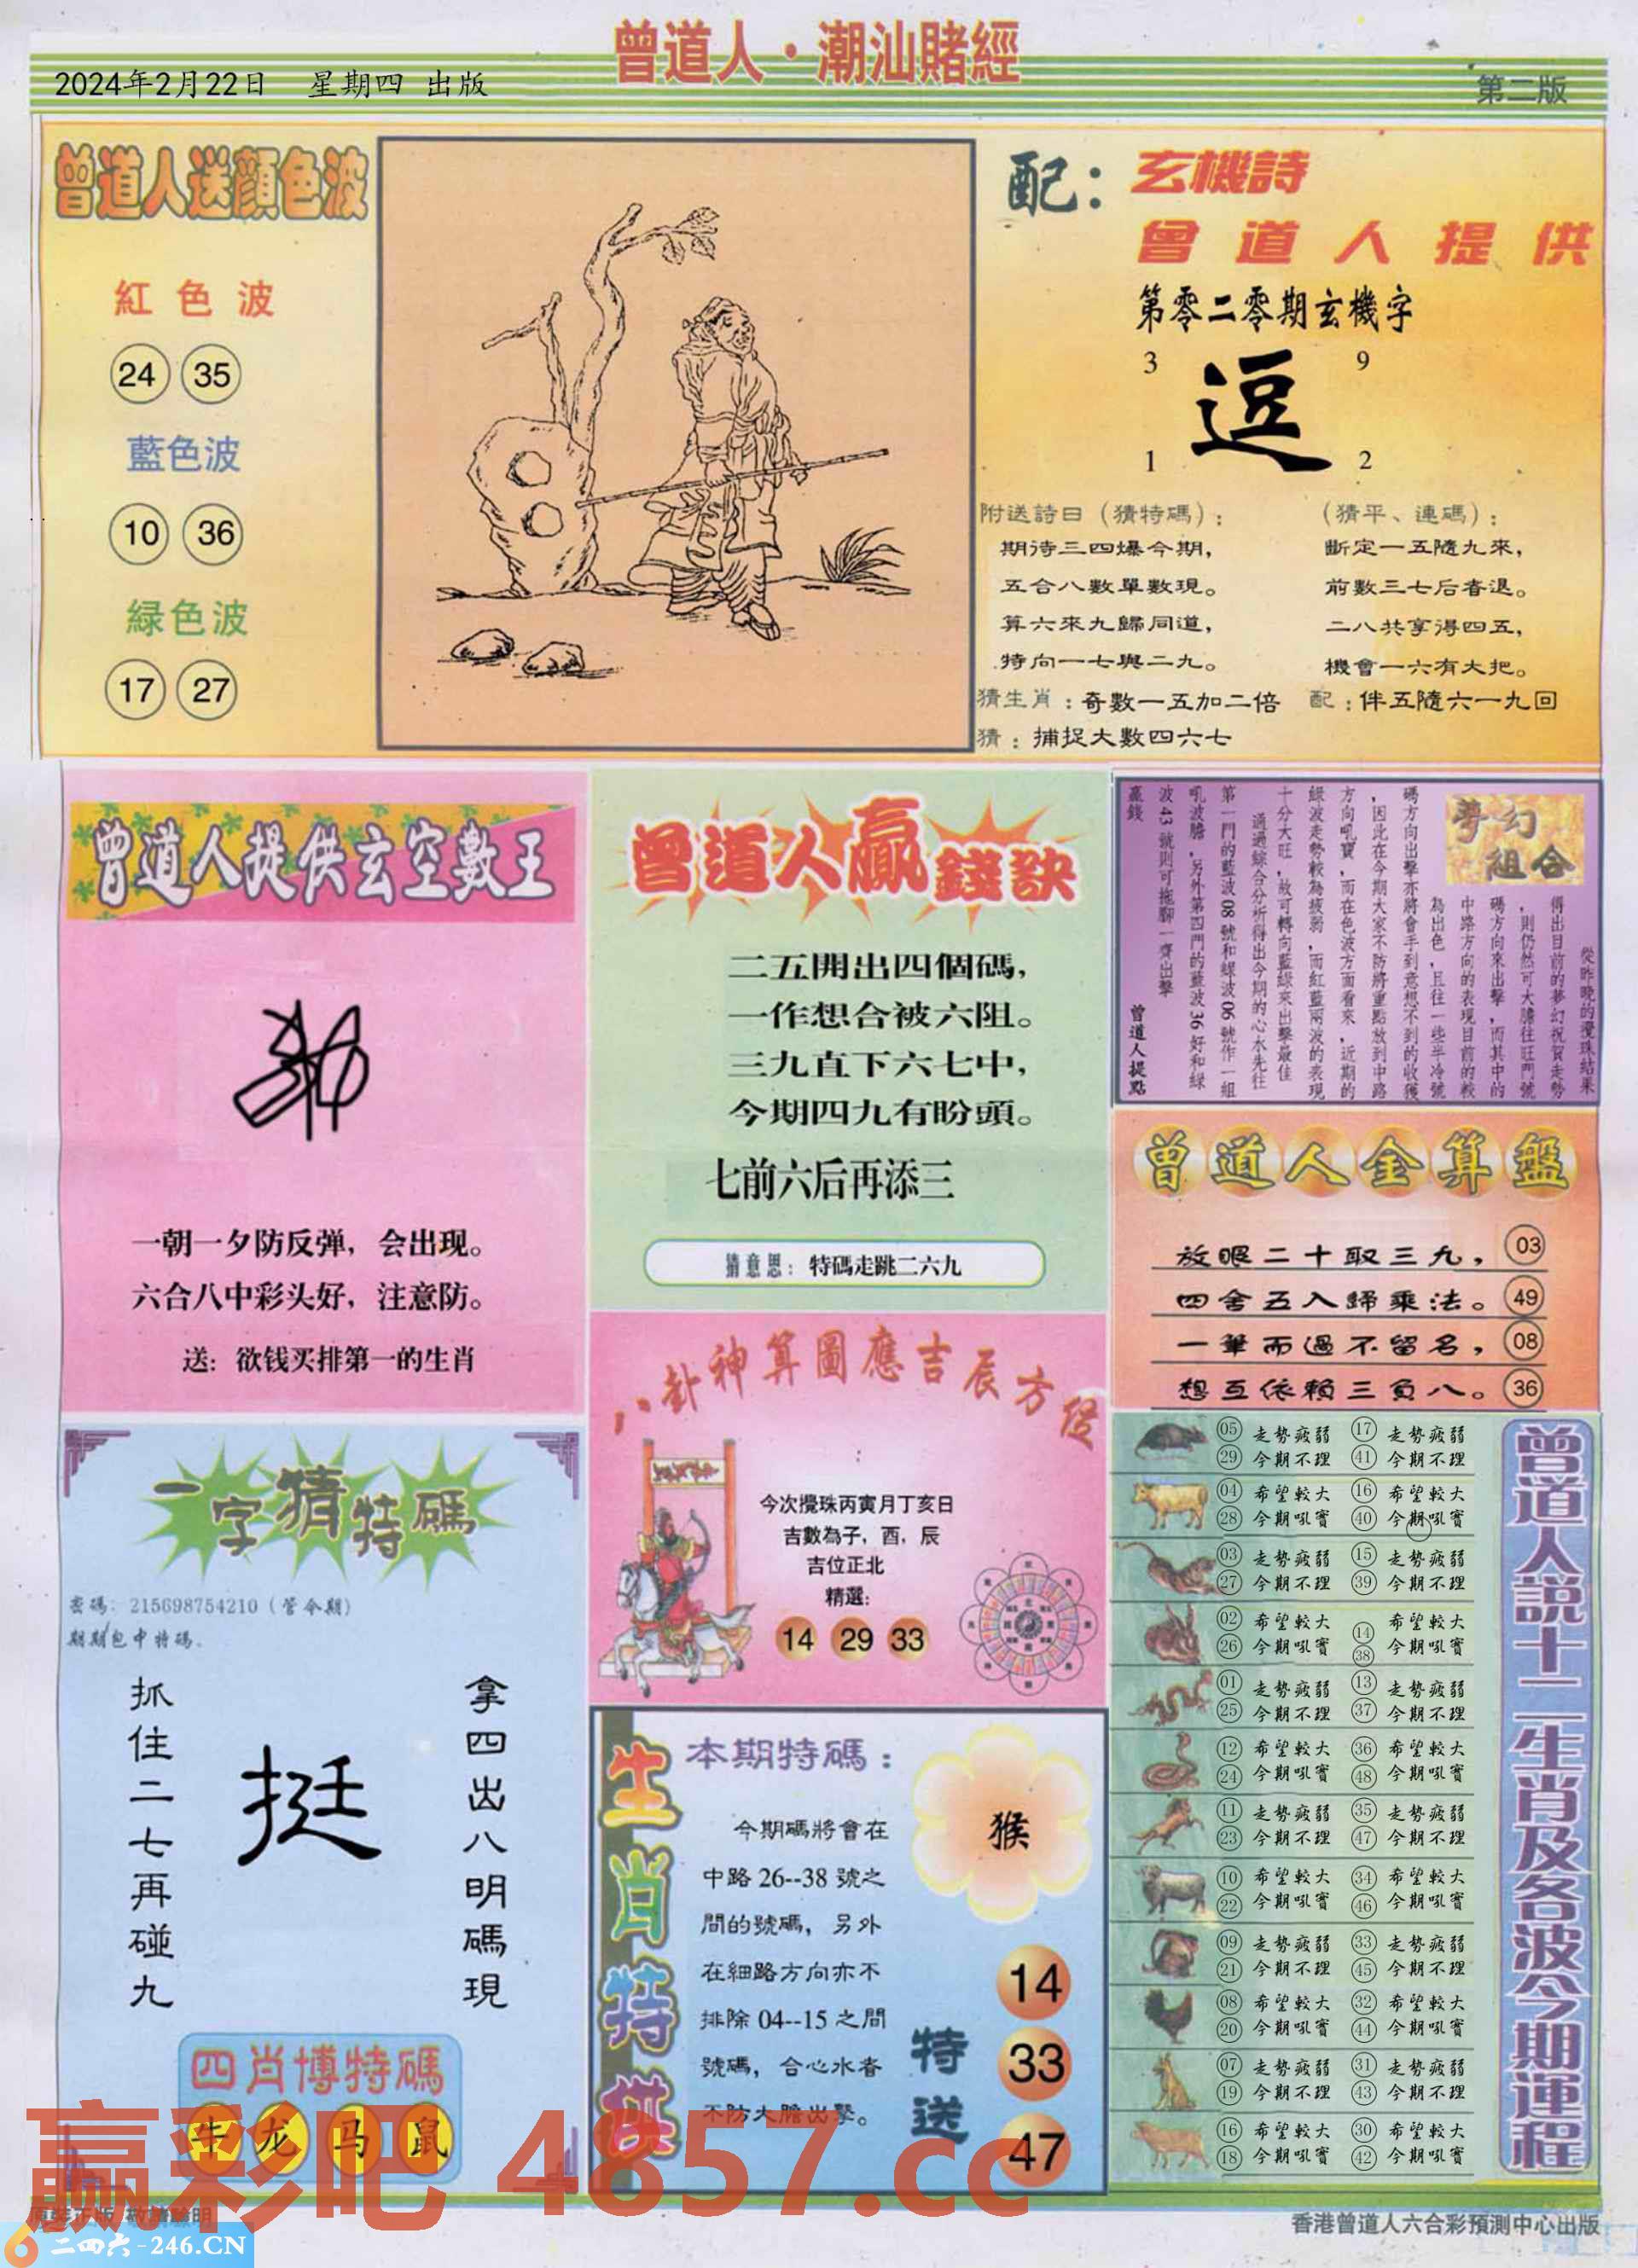 曾道人·潮汕賭經
2024年2月22日 星期四 出版
第二版
曾道人送顏色波
紅色波
24 35
藍色波
10 36
緑色波
17 27
配：玄機詩
曾道人提供
第零二零期玄機字
3 9
逗
1 2
附送詩日（猜特碼）：
期待三四爆今期，
五合八數單數現。
算六來九歸同道，
特向一七與二九。
（猜平、連碼）：
斷定一五隨九來，
前數三七后春退。
二八共享得四五，
機會一六有大把。
猜生肖：奇數一五加二倍 配：伴五隨六一九回
猜：捕捉大數四六七
曾道人提供玄空數王
一朝一夕防反弹，会出现。
六合八中彩头好，注意防。
送：欲钱买排第一的生肖
曾道人贏錢訣
二五開出四個碼，
一作想合被六阻。
三九直下六七中，
今期四九有盼頭。
七前六后再添三
猜意思：特碼走跳二六九
夢幻組合
從昨晚的攪珠結果
得出目前的夢幻祝賀走勢
，則仍然可大膽往旺門號
碼方向來出擊，而其中的
中路方向的表現目前的較
為出色，且往一些半冷號
碼方向出擊亦將會手到意想不到的收獲
，因此在今期大家不防將重點放到中路
方向吼寶，而在色波方面看來，近期的
綠波走勢較為疲弱，而紅藍兩波的表現
十分大旺，故可轉向藍綠來出擊最佳
通過綜合分析得出今期的心水先往
第一門的藍波08號和綠波06號作一組
吼波膽，另外第四門的藍波36好和綠
波43號則可拖腳一齊出擊
贏錢
曾道人提點
曾道人金算盤
放眼二十取三九， 03
四舍五入歸乘法。 49
一筆而過不留名， 08
想互依賴三負八。 36
八卦神算圖應吉辰方位
今次攪珠丙寅月丁亥日
吉數為子，酉，辰
吉位正北
精選：
14 29 33
一字猜特碼
密碼：215698754210（管令期）
期期包中特碼.
拿四出八明碼現
挺
抓住二七再碰九
四肖博特碼
牛 龙 马 鼠
生肖特供
本期特碼：
猴
今期碼將會在
中路26--38號之
間的號碼，另外
在細路方向亦不
排除04--15之間
號碼，合心水者
不防大膽出擊。
特送
14
33
47
曾道人說十二生肖及各波今期運程
05 走勢疲弱 17 走勢疲弱
29 今期不理 41 今期不理
04 希望較大 16 希望較大
28 今期吼寶 40 今期吼寶
03 走勢疲弱 15 走勢疲弱
27 今期不理 39 今期不理
02 希望較大 14 希望較大
26 今期吼寶 38 今期吼寶
01 走勢疲弱 13 走勢疲弱
25 今期不理 37 今期不理
12 希望較大 36 希望較大
24 今期吼寶 48 今期吼寶
11 走勢疲弱 35 走勢疲弱
23 今期不理 47 今期不理
10 希望較大 34 希望較大
22 今期吼寶 46 今期吼寶
09 走勢疲弱 33 走勢疲弱
21 今期不理 45 今期不理
08 希望較大 32 希望較大
20 今期吼寶 44 今期吼寶
07 走勢疲弱 31 走勢疲弱
19 今期不理 43 今期不理
16 希望較大 30 希望較大
18 今期吼寶 42 今期吼寶
赢彩吧 4857.cc
二四六-246.CN
香港曾道人六合彩預測中心出版